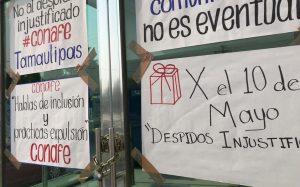 No al despido
injustificado
#conafe
Tamaulipas
no es eventual
conafe
"Hablas de inclusión
y
prácticas expulsión"
conafe
X el 10 de
Mayo
"DESPIDOS INJUSTIFIC